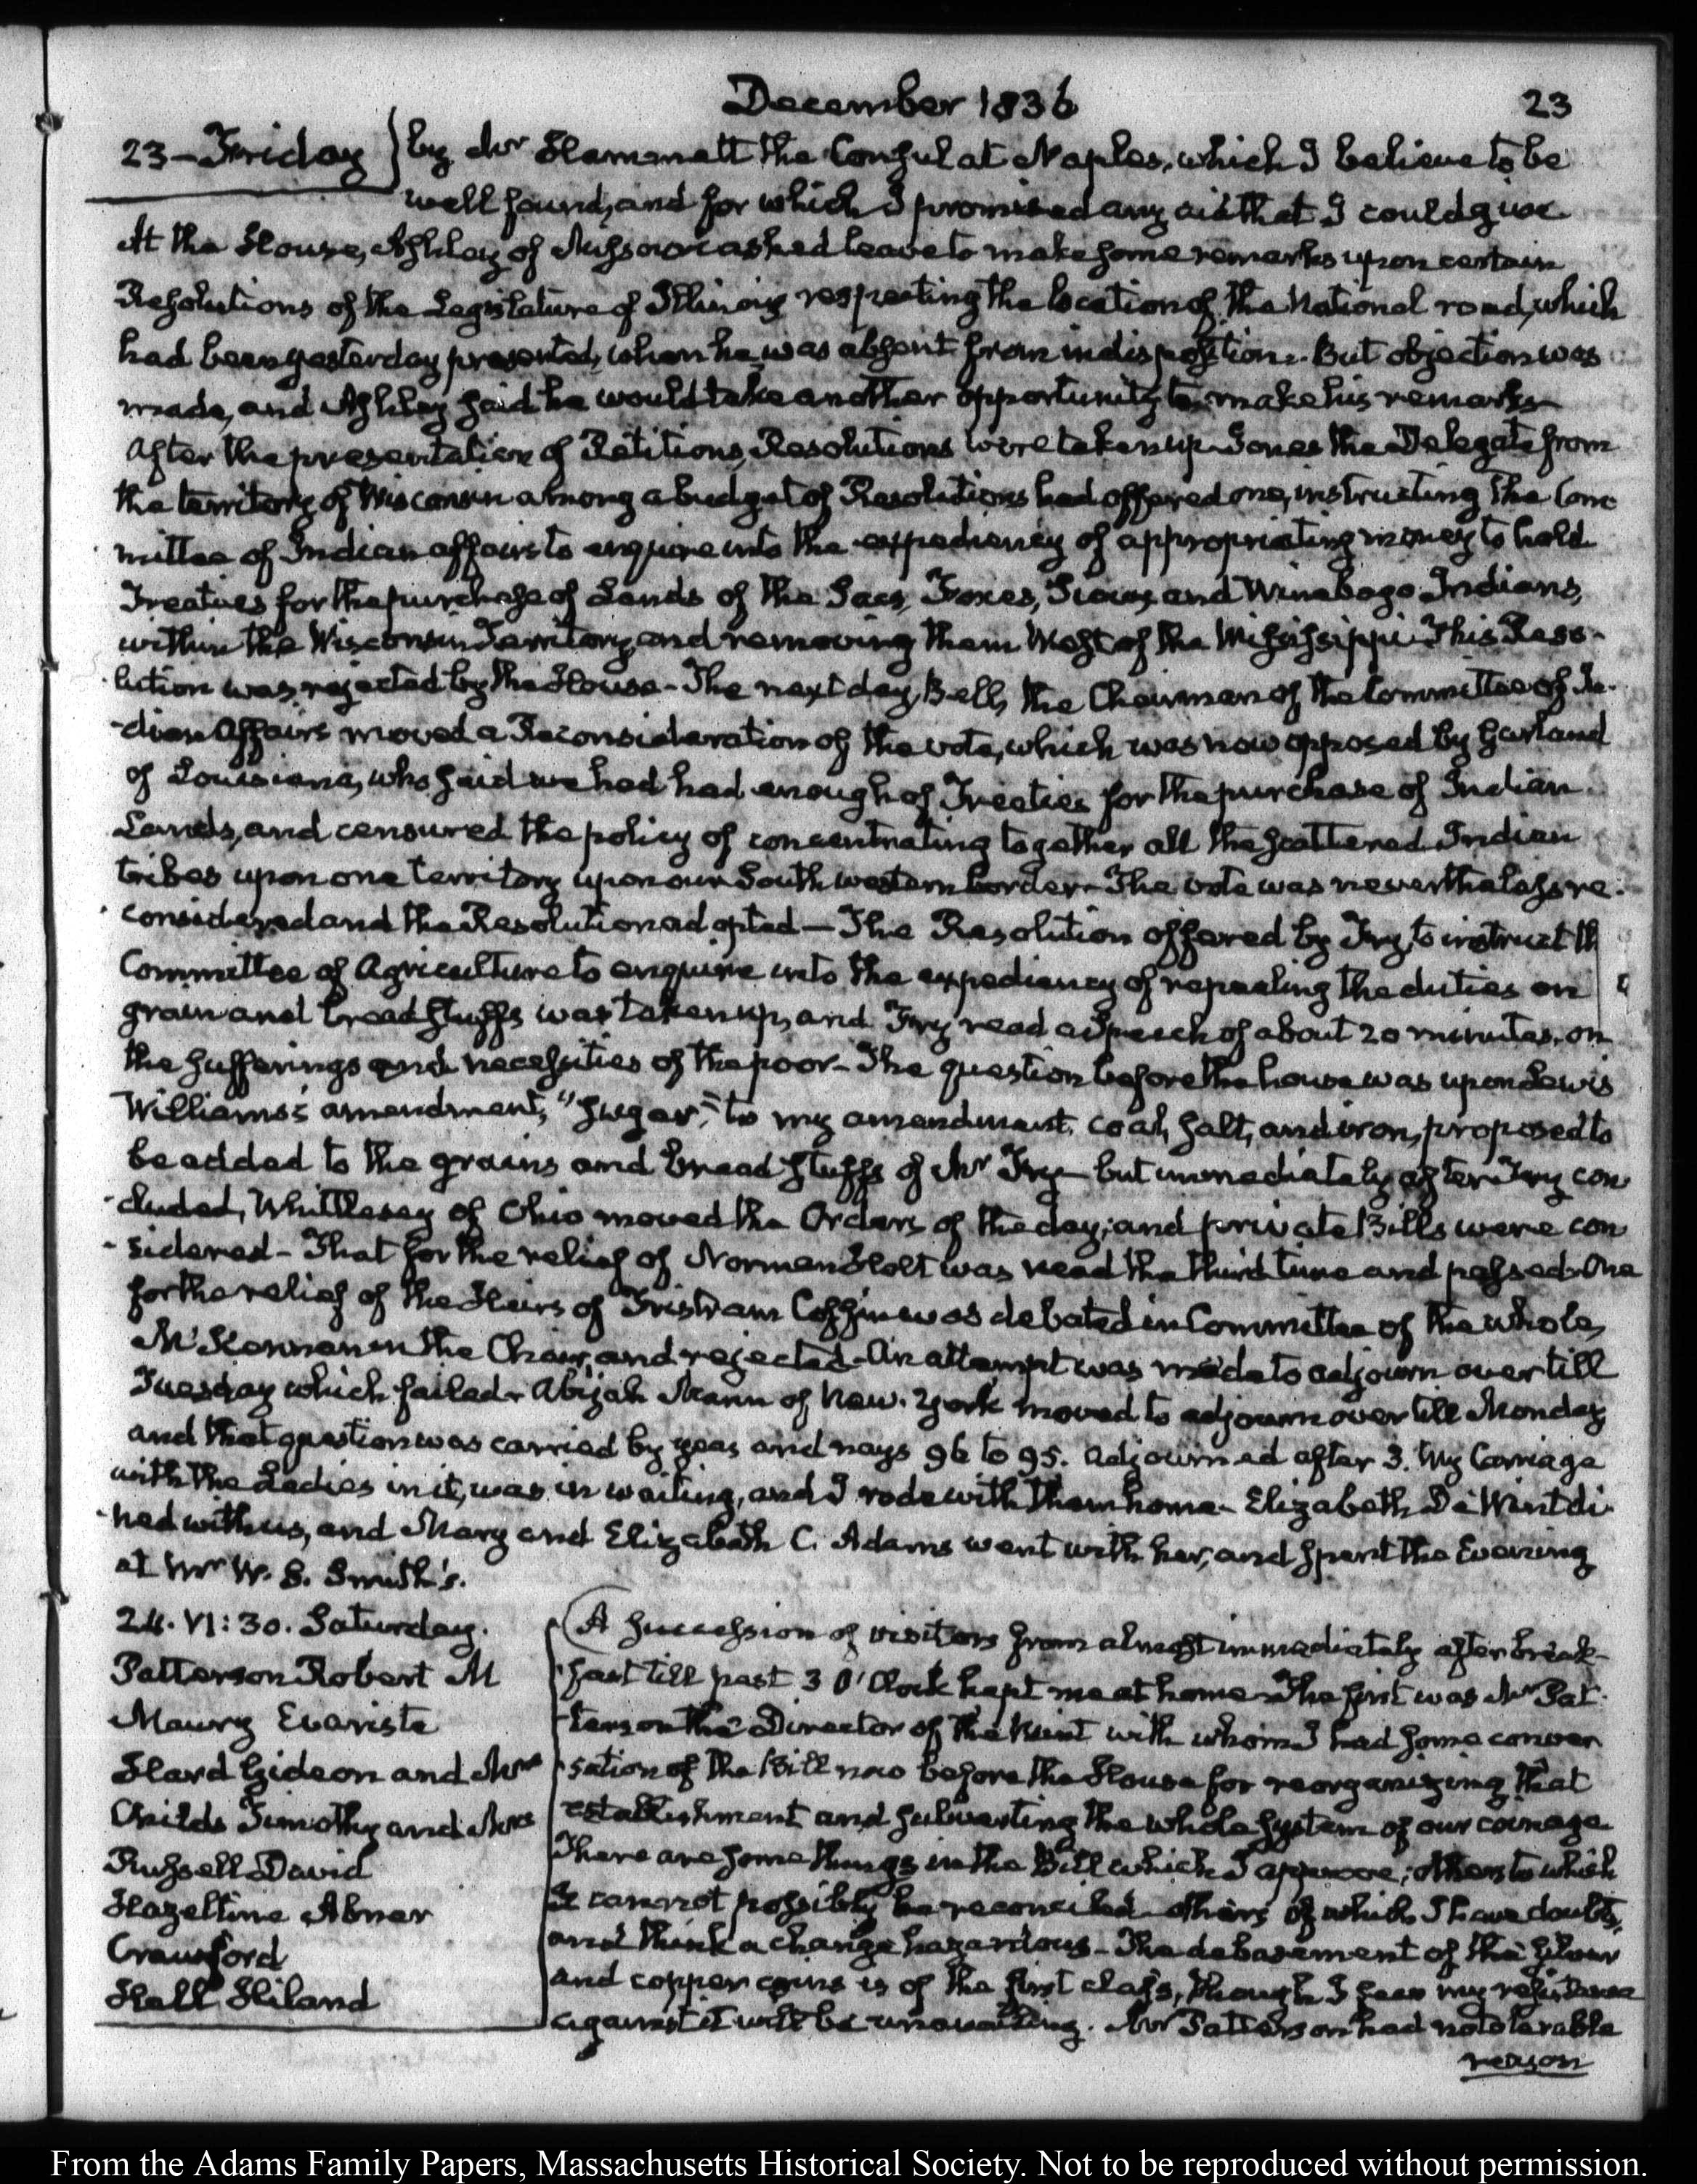 December 1836
23
23 – Friday
by Mr Hammett the Consul at Naples, which I believe to be
well found, and for which I promised any aid that I could give
At the House, Ashley of Missouri asked leave to make some remarks upon certain
Resolutions of the Legislature of Illinois respecting the location of the National road, which
had been yesterday presented, when he was absent from indisposition. But objection was
made, and Ashley said he would take another opportunity to make his remarks
After the presentation of Petitions, Resolutions were taken up. Jones the Delegate from
the territory of Wisconsin among a budget of Resolutions had offered one, instructing the Com
mittee of Indian affairs to enquire into the expediency of appropriating money to hold
Treaties for the purchase of Lands of the Sacs, Foxes, Sioux and Winebago Indians,
within the Wisconsin Territory, and removing them West of the Mississippi. This Reso-
lution was rejected by the House – The next day, Bell, the Chairman of the Committee of In-
-dian Affairs moved a Reconsideration of the vote, which was now opposed by Garland
of Louisiana, who said we had had enough of Treaties for the purchase of Indian
Lands, and censured the policy of concentrating together all the scattered Indian
tribes upon one territory upon our South western border – The vote was nevertheless re-
considered and the Resolution adopted – The Resolution offered by Fry, to instruct th
Committee of Agriculture to enquire into the expediency of repealing the duties on
grain and bread stuffs was taken up, and Fry read a Speech of about 20 minutes, on
the sufferings and necessities of the poor – The question before the house was upon Lewis
Williams's amendment, "Sugar," to my amendment. coal, salt, and iron, proposed to
be added to the grains and bread stuffs of Mr Fry – but immediately after Fry con
-cluded, Whittlesey of Ohio moved the Orders of the day; and private Bills were con
-sidered – That for the relief of Norman Holt was read the third time and passed. One
for the relief of the Heirs of Tristram Coffin was debated in Committee of the whole,
McKennan in the Chair, and rejected – An attempt was made to adjourn over till
Tuesday which failed – Abijah Mann of New-York moved to adjourn over till Monday
and that question was carried by yeas and nays 96 to 95. Adjourned after 3. My Carriage
with the Ladies in it, was in waiting, and I rode with them home – Elizabeth De Wint di
-ned with us, and Mary and Elizabeth C. Adams went with her, and spent the Evening
at Mr W. S. Smith's.
24. VI:30. Saturday.
Patterson Robert M
Maury Evariste
Hard Gideon and Mrs
Childs Timothy and Mrs
Russell David
Hazeltine Abner
Crawford
Hall Hiland
A succession of visitors from almost immediately after break-
fast till past 3 O'Clock kept me at home – The first was Mr Pat-
terson the Director of the Mint with whom I had some conver
sation of the Bill now before the House for reorganizing that
establishment and subverting the whole system of our coinage
There are some things in the Bill which I approve; others to which
I cannot possibly be reconciled – others of which I have doubts,
and think a change hazardous – The debasement of the silver
and copper coins is of the first class, though I fear my resistance
against it will be unavailing. Mr Patterson had no tolerable
reason
From the Adams Family Papers, Massachusetts Historical Society. Not to be reproduced without permission.